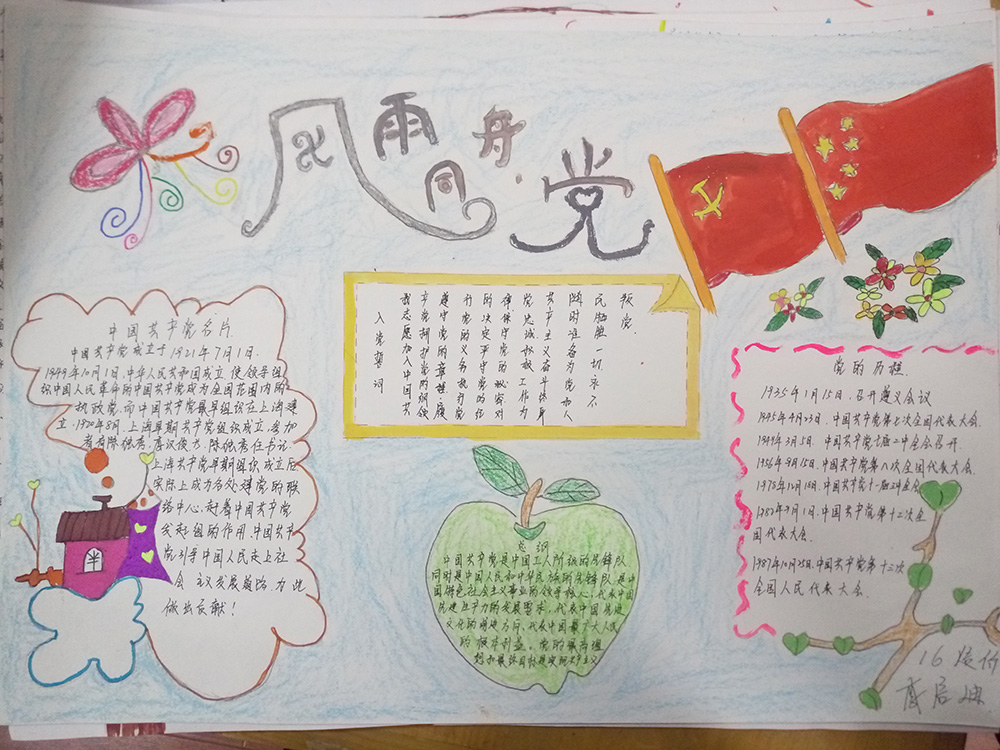 风雨同舟 党
中国共产党名片
中国共产党成立于1921年7月1日.
1949年10月1日,中华人民共和国成立,使领导组
织中国人民革命的中国共产党成为全国范围内的
执政党.而中国共产党最早组织在上海建
立.1920年8月,上海早期共产党组织成立,参加
者有陈独秀,李汉俊
陈独秀任书记.
上海共产党早期组织成立后
实际上成为各处建党的联
络中心,起着中国共产党
发起组的作用.中国共产
党引导中国人民走上社
会主义发展道路.为此
做出贡献!
入党誓词
我志愿加入中国共
产党,拥护党的纲领
遵守党的章程,履
行党员义务,执行党
的决定,严守党的纪
律,保守党的秘密,对
党忠诚,积极工作,为
共产主义奋斗终身
随时准备为党和人
民牺牲一切,永不
叛党.
总纲
中国共产党是中国工人阶级的先锋队
同时是中国人民和中华民族的先锋队,是中
国特色社会主义事业的领导核心,代表中国
先进生产力的发展要求,代表中国先进
文化的前进方向,代表中国最广大人民
的根本利益。党的最高理
想和最终目标是实现共产主义
党的历程
1935年1月15日,召开遵义会议
1945年4月23日,中国共产党第七次全国代表大会.
1949年3月5日,中国共产党七届二中全会召开.
1956年9月15日,中国共产党第八次全国代表大会.
中国共产党十一届三中全会
1982年9月1日,中国共产党第十二次全
国代表大会.
1987年10月25日,中国共产党第十三次
全国人民代表大会.
16